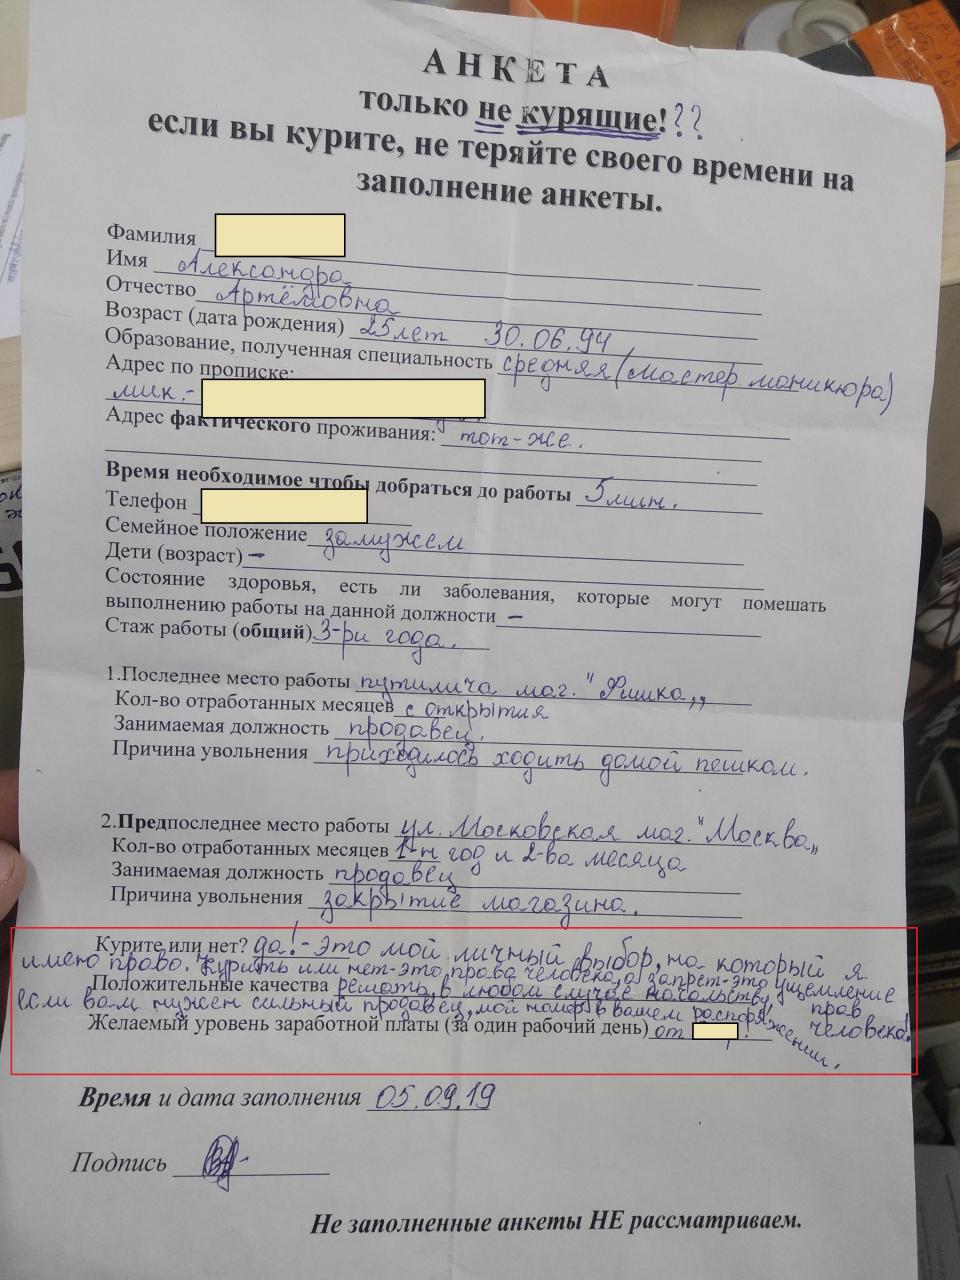 АНКЕТА
только не курящие!??
если вы курите, не теряйте своего времени на
заполнение анкеты.
Фамилия
Имя Александра
Отчество Артёмовна
Возраст (дата рождения) 25 лет 30.06.94
Образование, полученная специальность средняя (мастер маникюра)
Адрес по прописке:
мик.-
Адрес фактического проживания: тот-же.
Время необходимое чтобы добраться до работы 5 мин.
Телефон
Семейное положение замужем
Дети (возраст) –
Состояние здоровья, есть ли заболевания, которые могут помешать
выполнению работы на данной должности –
Стаж работы (общий) 3-ри года.
1.Последнее место работы путилича маг. "Фишка„
Кол-во отработанных месяцев с открытия
Занимаемая должность продавец.
Причина увольнения приходилось ходить домой пешком.
2.Предпоследнее место работы ул. Московская маг. "Москва„
Кол-во отработанных месяцев 1-н год и 2-ва месяца
Занимаемая должность продавец
Причина увольнения закрытие магазина.
Курите или нет? да! - это мой личный выбор, на который я
имею право. Курить или нет-это права человека, а запрет-это ущемление
прав человека!
Положительные качества решать в любом случае начальству,
если вам нужен сильный продавец, мой номер в вашем распоряжении.
Желаемый уровень заработной платы (за один рабочий день) от
Время и дата заполнения 05.09.19
Подпись
Не заполненные анкеты НЕ рассматриваем.